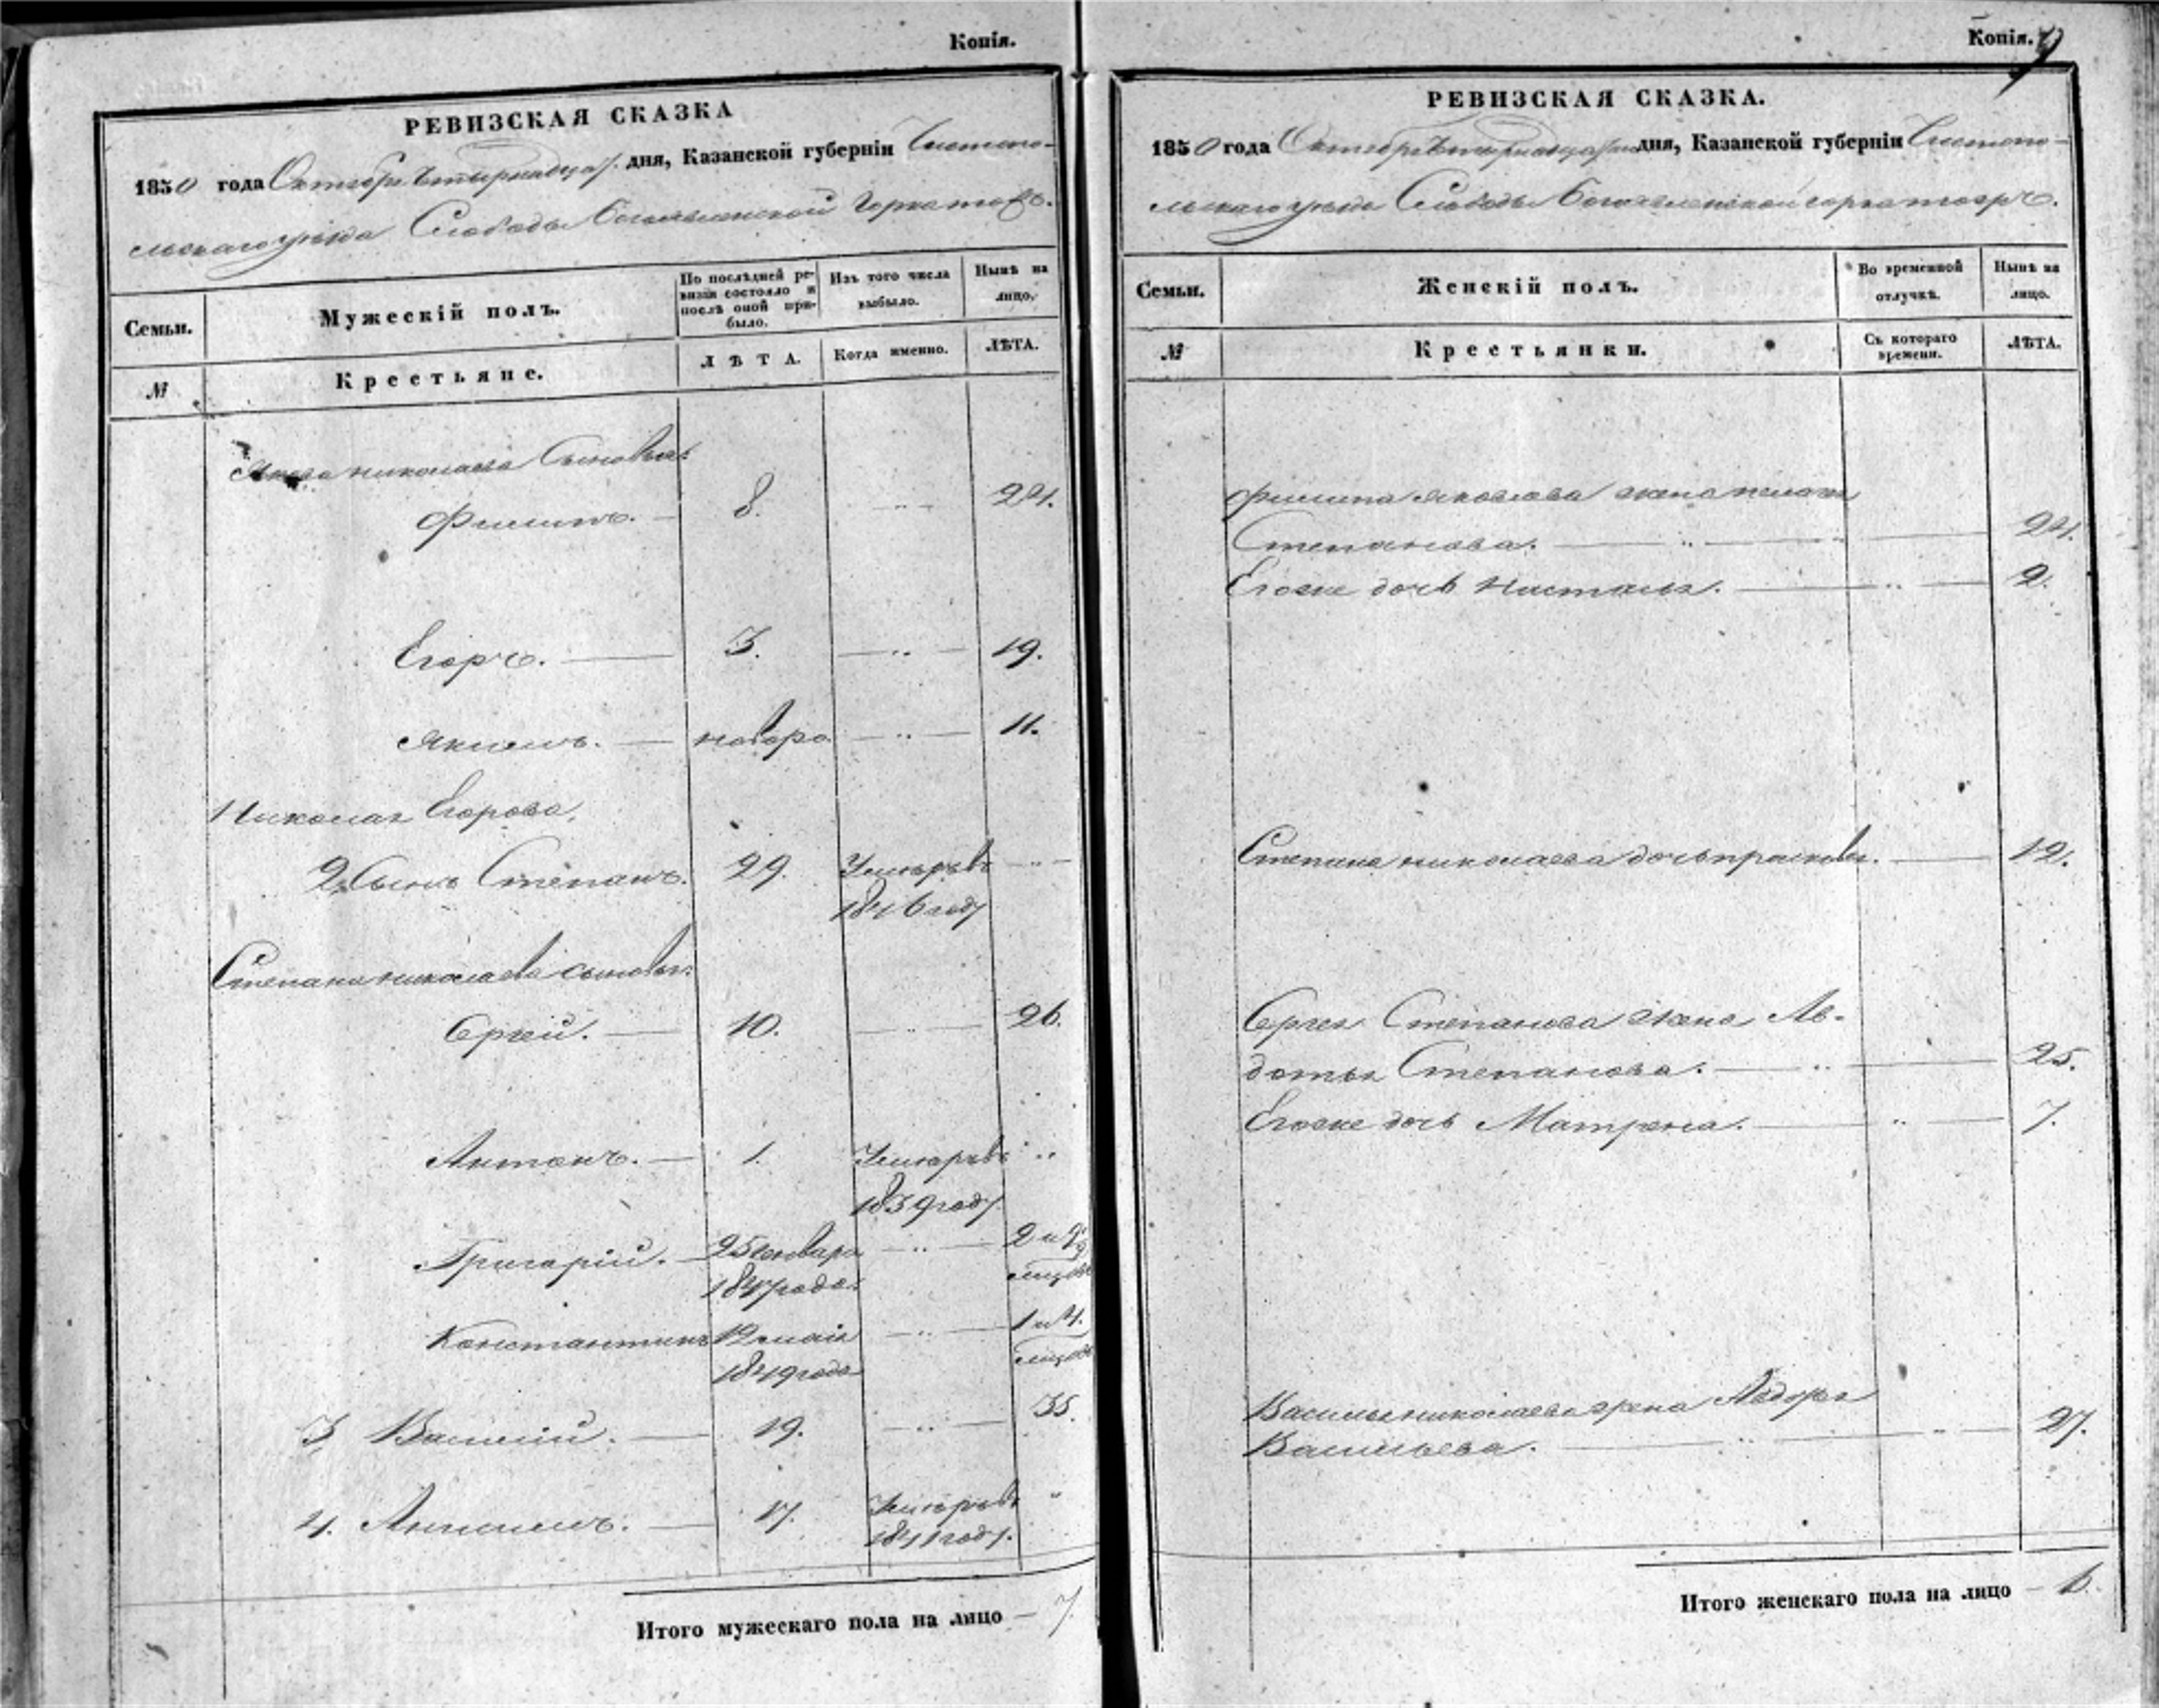 Копія.
РЕВИЗСКАЯ СКАЗКА
1850 года Октября дня, Казанской губерніи Чистопо-
льскаго уѣзда Слободы Богоявленской Горка тожъ.
Семьи.
Мужескій полъ.
По послѣдней ре-
визіи состояло и
послѣ оной при-
было.
Изъ того числа
выбыло.
Нынѣ на
лицо.
№
Крестьяне.
ЛѢТА.
Когда именно.
ЛѢТА.
Якова Николаева Сыновья:
Филипъ. 8. 24.
Егоръ. 3. 19.
Якимъ. новоро 11.
Николая Егорова,
2. Сынъ Степанъ. 29. Умеръ въ
1846 году
Степана Николаева сыновья:
Сергѣй. 10. 26.
Антонъ. 1. Умеръ въ
1839 году
Григорій. 25 января 2 и 9
1847 года
Константинъ 12 маія 1 и 4.
1849 года
3 Василій. 19. 35.
4. Анисимъ. 17. Умеръ въ
1841 году.
Итого мужескаго пола на лицо 7.
Копія. 9
РЕВИЗСКАЯ СКАЗКА.
1850 года Октября дня, Казанской губерніи Чистопо-
льскаго уѣзда Слободы Богоявленской Горка тожъ.
Семьи.
Женскій полъ.
Во временной
отлучкѣ.
Нынѣ на
лицо.
№
Крестьянки.
Съ котораго
времени.
ЛѢТА.
Филипа Яковлева жена Пелагея
Степанова. 24.
Егоже дочь Настасья. 2.
Степана Николаева дочь Прасковья. 12.
Сергея Степанова жена Ав-
дотья Степанова. 25.
Егоже дочь Матрена. 7.
Василья Николаева жена
Васильева. 27.
Итого женскаго пола на лицо 6.